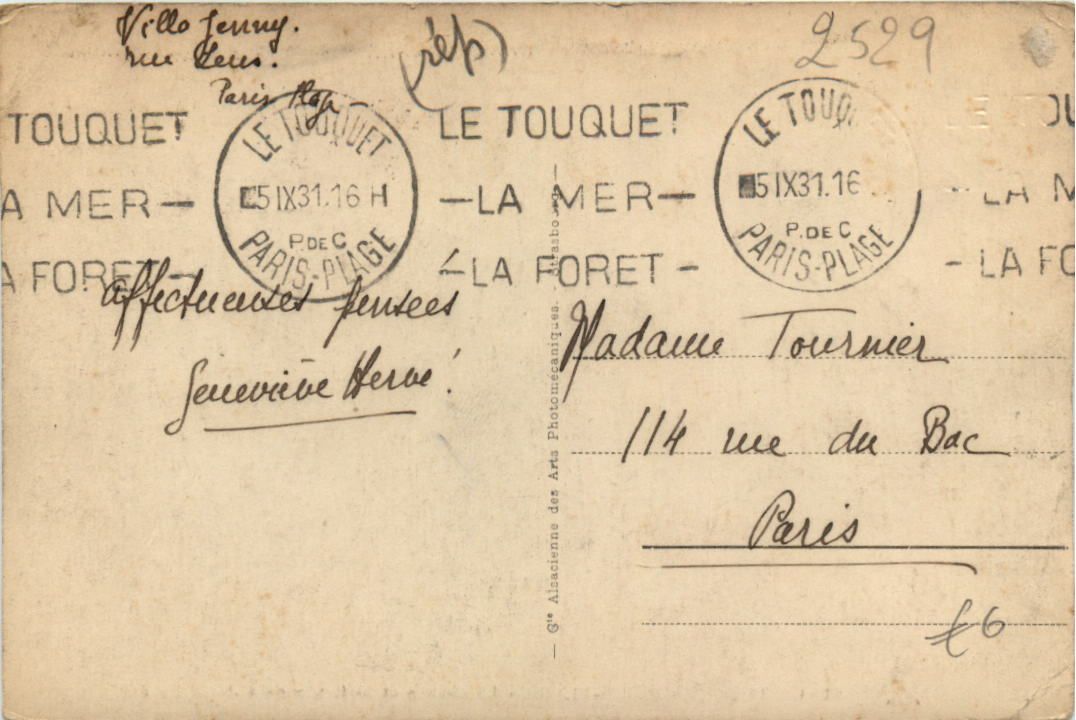 Villa Jenny.
rue Lens.
Paris Plage
(rép)
2529
TOUQUET
LA MER —
LA FORET —
LE TOUQUET
5 IX31.16 H
P. DE C
PARIS-PLAGE
LE TOUQUET
— LA MER —
— LA FORET —
LE TOUQ
5 IX31.16
P. DE C
PARIS-PLAGE
LE TOU
— LA M
— LA FO
Affectueuses pensées
Geneviève Hervé!
— Gte Alsacienne des Arts Photomécaniques. Strasbourg —
Madame Tournier
114 rue du Bac
Paris
£6